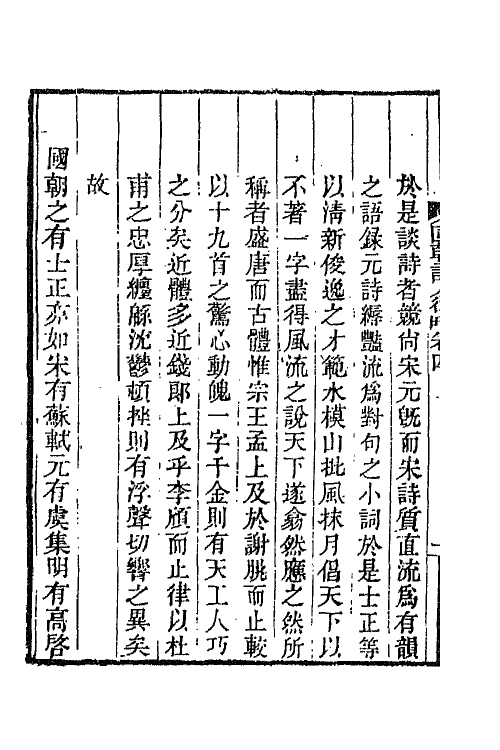 於是談詩者競尚宋元旣而宋詩質直流爲有韻
之語録元詩縟豔流爲對句之小詞於是士正等
以淸新俊逸之才範水模山批風抹月倡天下以
不著一字盡得風流之說天下遂翕然應之然所
稱者盛唐而古體惟宗王孟上及於謝朓而止較
以十九首之驚心動魄一字千金則有天工人巧
之分矣近體多近錢郎上及乎李頎而止律以杜
甫之忠厚纏緜沈鬱頓挫則有浮聲切響之異矣
故
國朝之有士正亦如宋有蘇軾元有虞集明有高啓